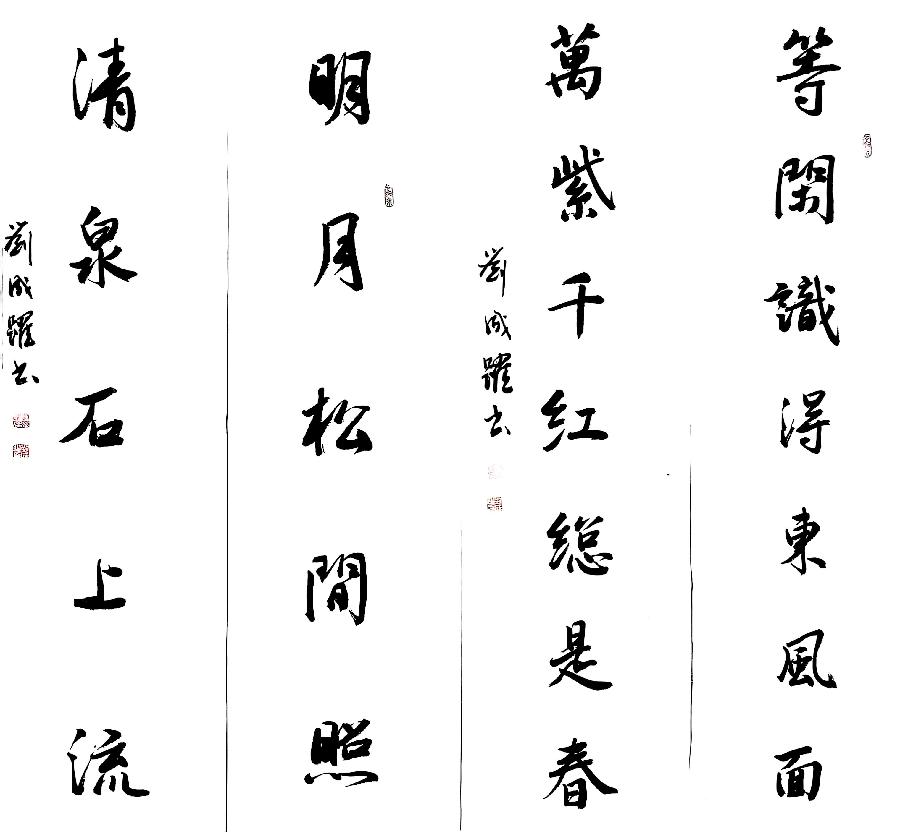 等閑識得東風面
萬紫千紅總是春
劉成躍书
明月松間照
清泉石上流
劉成躍书